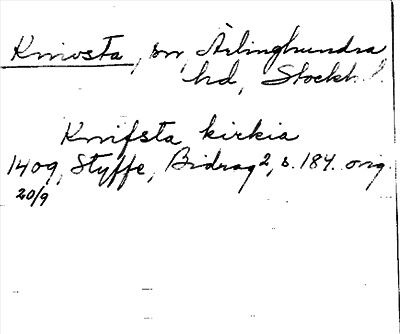 Knivsta, sn, Ärlinghundra
hd, Stockh. l.
Knifsta kirkia
1409, Styffe, Bidrag 2, s. 184. orig.
20/9